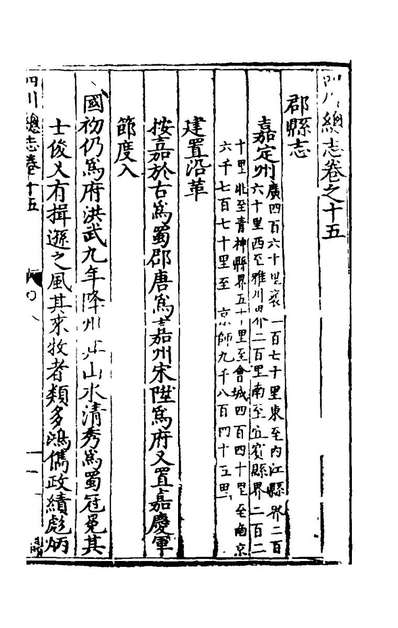 四川總志卷之十五
郡縣志
嘉定州
廣四百六十里袤一百七十里東至內江縣界二百
六十里西至雅州界二百里南至宜賓縣界二百二
十里北至青神縣界五十里至會城四百四十里至南京
六千七百七十里至京師九千八百四十五里
建置沿革
按嘉於古爲蜀郡唐爲嘉州宋陞爲府又置嘉慶軍
節度入
國初仍爲府洪武九年降州其山水清秀爲蜀冠冕其
士俊又有揖遜之風其來牧者類多鴻儒政績彪炳
四川總志卷十五